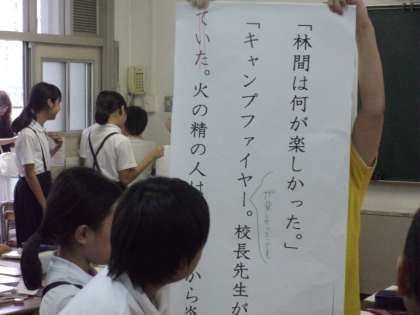 「林間は何が楽しかった。」
「キャンプファイヤー。校長先生が
ていた。火の精の人は
から